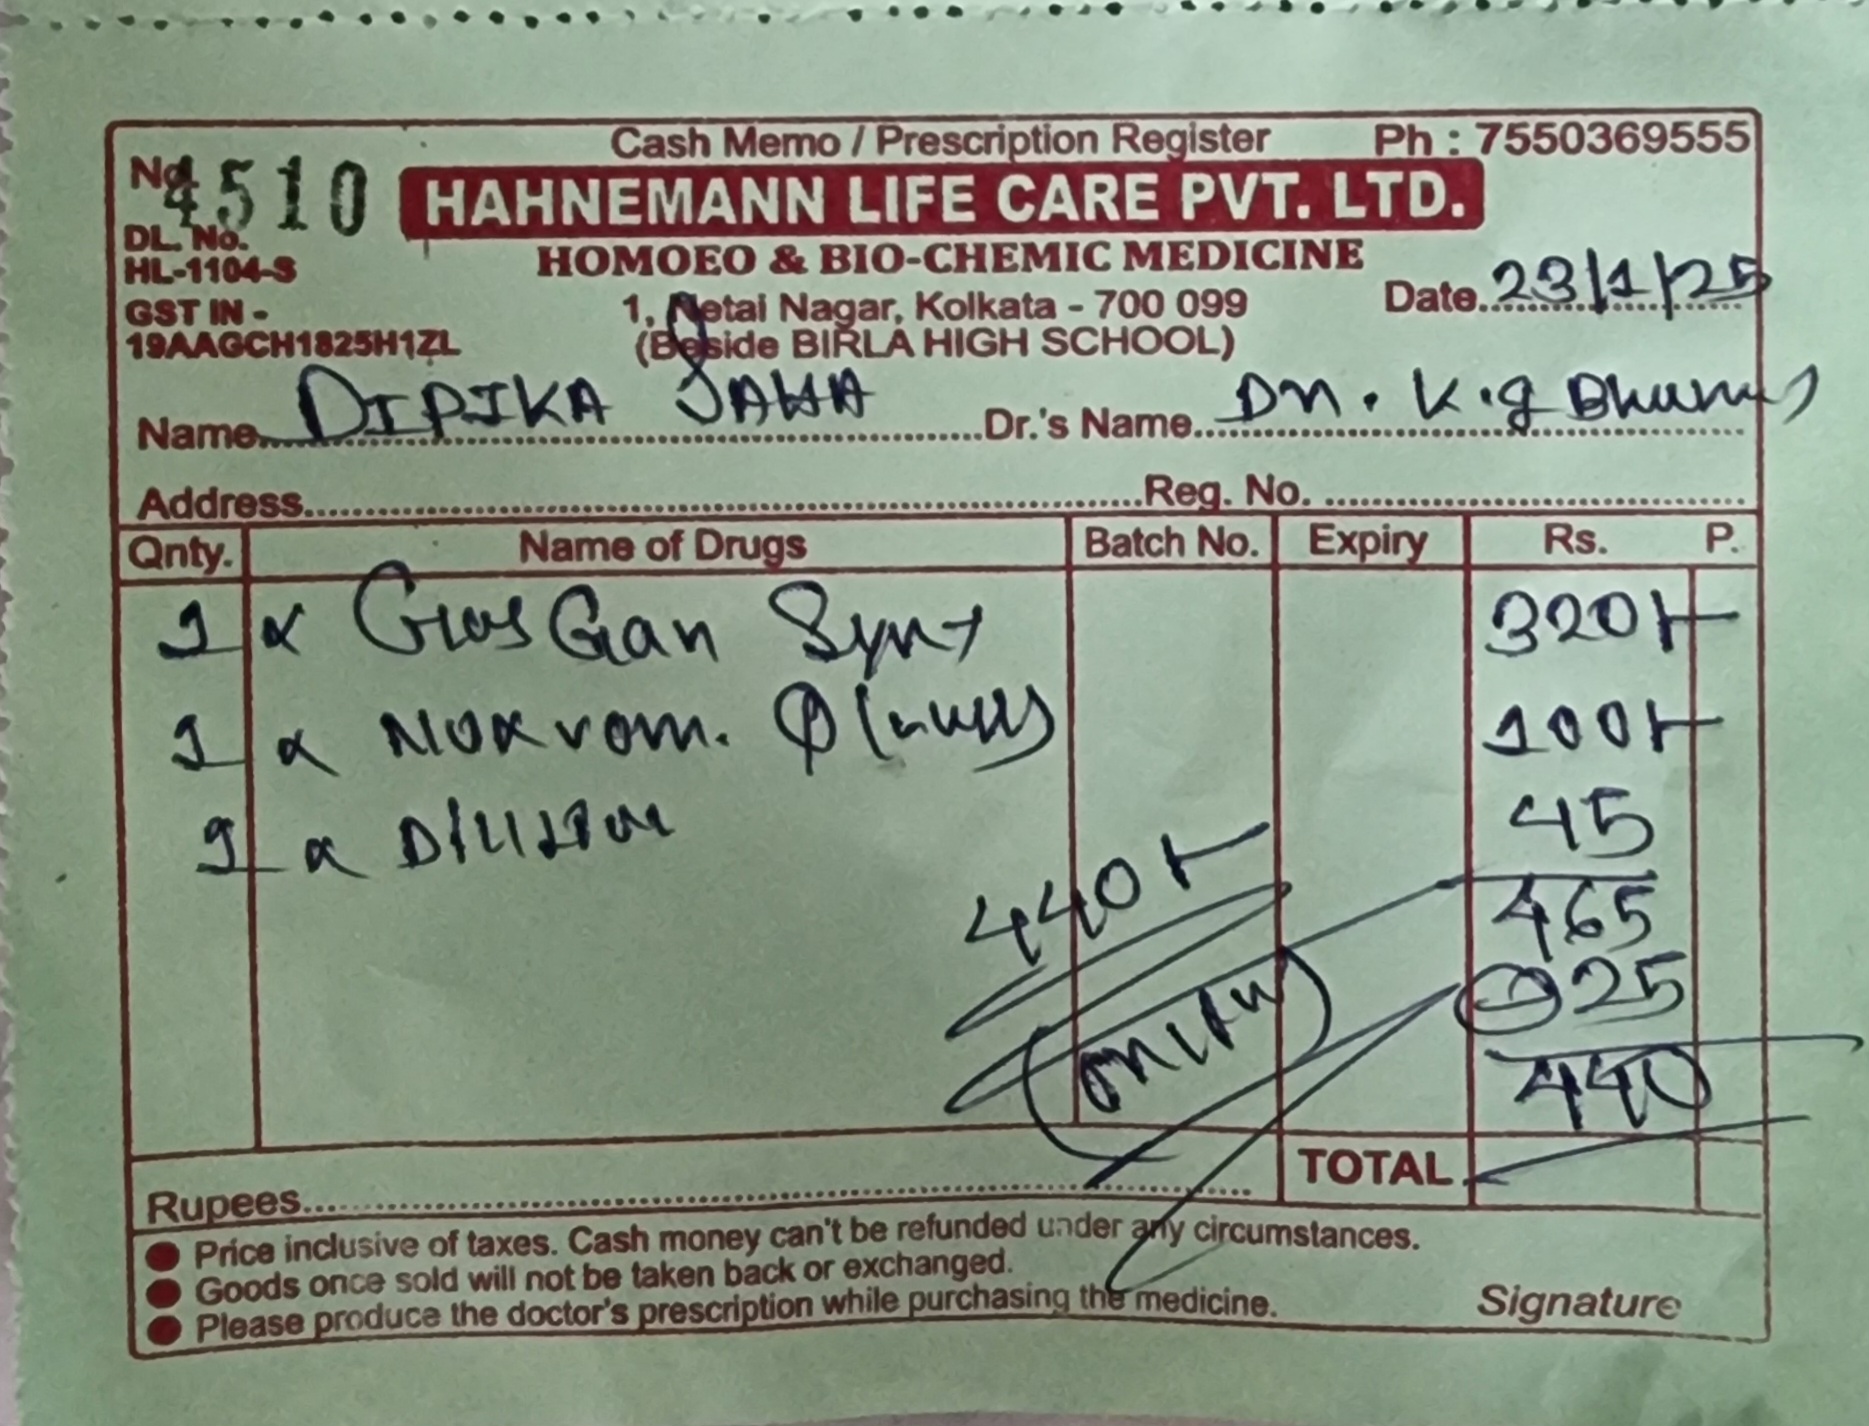 Cash Memo / Prescription Register Ph : 7550369555
No. 4510 HAHNEMANN LIFE CARE PVT. LTD.
DL. No. HOMOEO & BIO-CHEMIC MEDICINE
HL-1104-S Date 23/1/25
GST IN - 1, Netai Nagar, Kolkata - 700 099
19AAGCH1825H1ZL (Beside BIRLA HIGH SCHOOL)
Name DIPIKA SAHA Dr.'s Name Dr. K.g
Address Reg. No.
Qnty. Name of Drugs Batch No. Expiry Rs. P.
1 x Gan 320/-
1 x Nux vom. Φ 100/-
1 x Dilution 45
440/- 465
25
440
TOTAL
Rupees
Price inclusive of taxes. Cash money can't be refunded under any circumstances.
Goods once sold will not be taken back or exchanged.
Please produce the doctor's prescription while purchasing the medicine. Signature